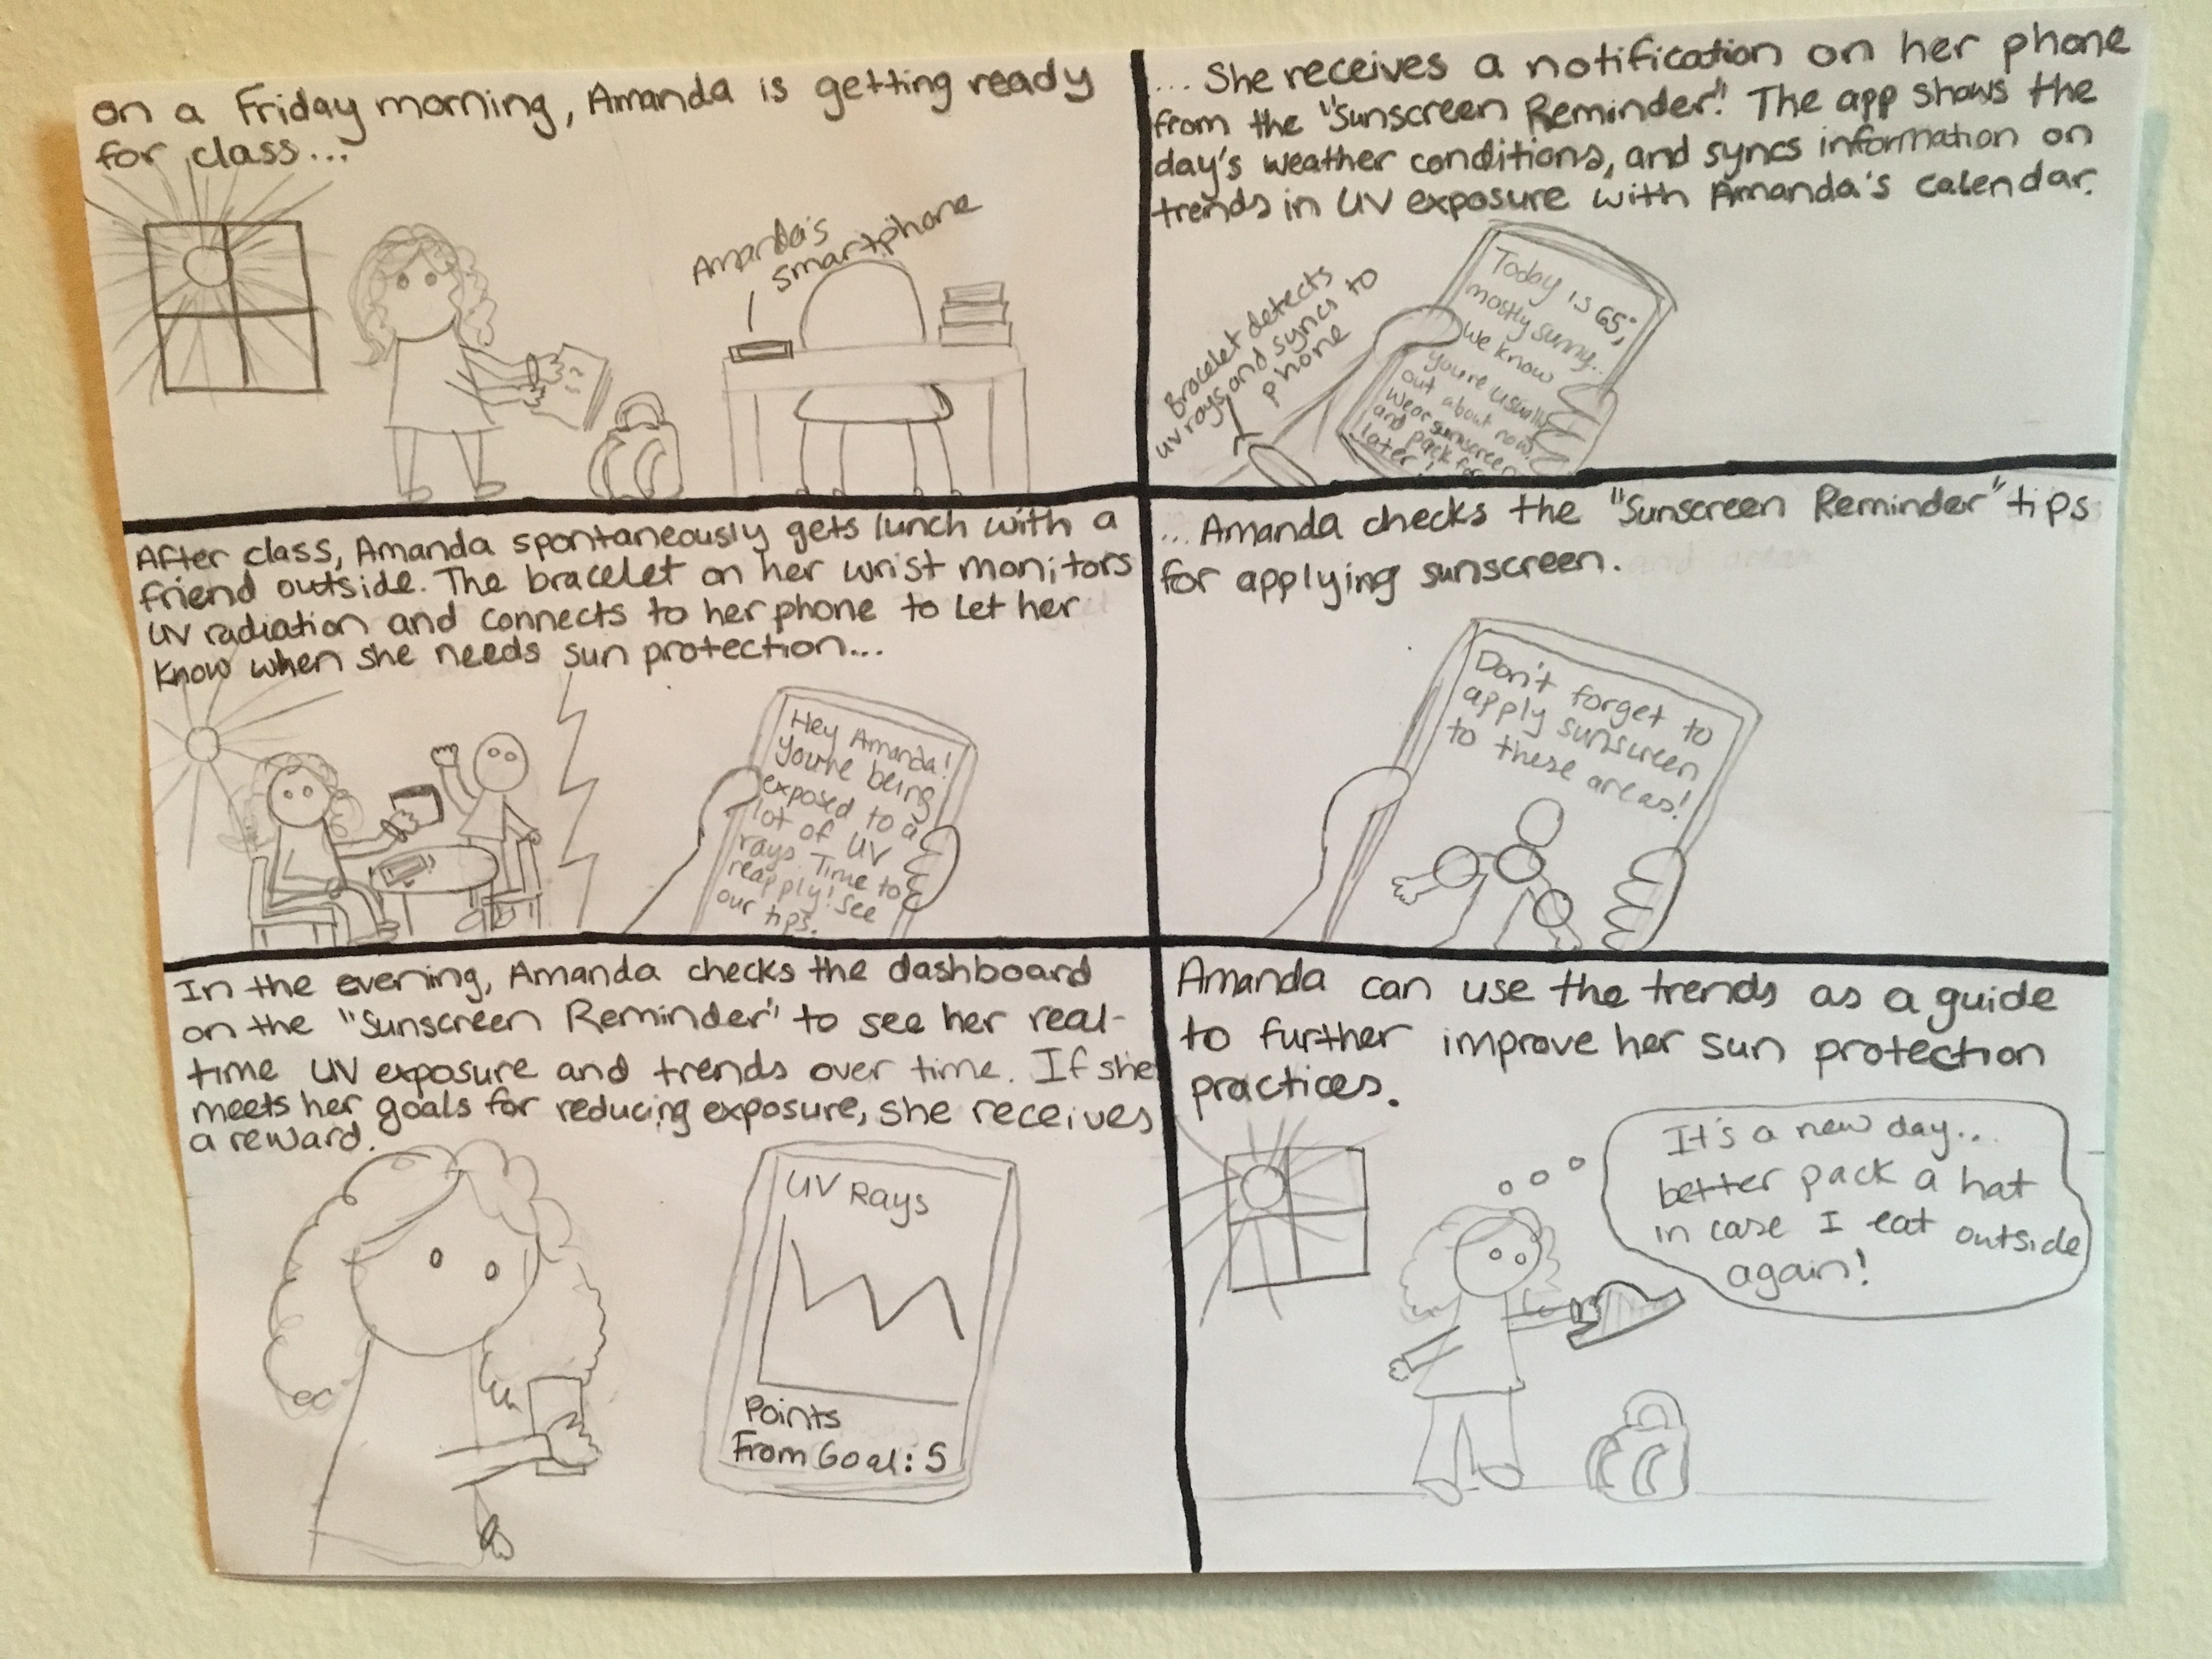 on a Friday morning, Amanda is getting ready
for class...
Amanda's
smartphone
... She receives a notification on her phone
from the "Sunscreen Reminder." The app shows the
day's weather conditions, and syncs information on
trends in UV exposure with Amanda's calendar.
Bracelet detects
uv rays, and syncs to
phone
Today is 65°,
mostly sunny...
we know
you're usually
out about now.
wear sunscreen
and pack for
later!
After class, Amanda spontaneously gets lunch with a
friend outside. The bracelet on her wrist monitors
UV radiation and connects to her phone to let her
know when she needs sun protection...
Hey Amanda!
You're being
exposed to a
lot of UV
rays. Time to
reapply! See
our tips.
... Amanda checks the "Sunscreen Reminder" tips
for applying sunscreen.
Don't forget to
apply sunscreen
to these areas!
In the evening, Amanda checks the dashboard
on the "Sunscreen Reminder" to see her real-
time UV exposure and trends over time. If she
meets her goals for reducing exposure, she receives
a reward.
UV Rays
Points
From Goal: 5
Amanda can use the trends as a guide
to further improve her sun protection
practices.
It's a new day...
better pack a hat
in case I eat outside
again!